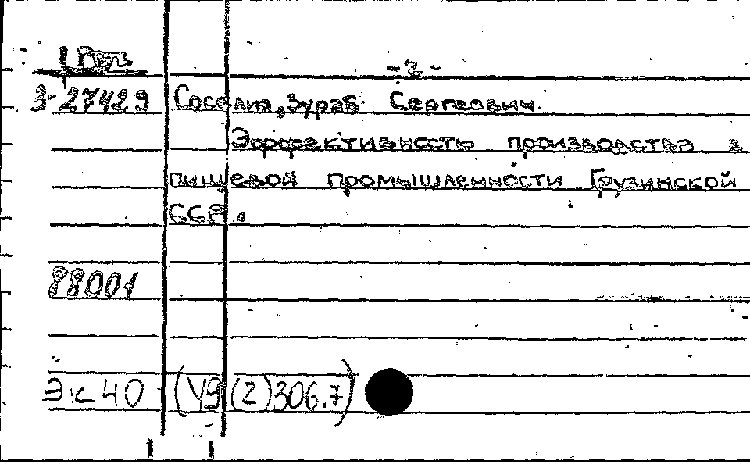 1 Деп
-2-
3-27429 Соселия, Зураб Сергеевич.
Эффективность производства в
пищевой промышленности Грузинской
ССР.
88001
Эк 40 (У9(2)306.7)